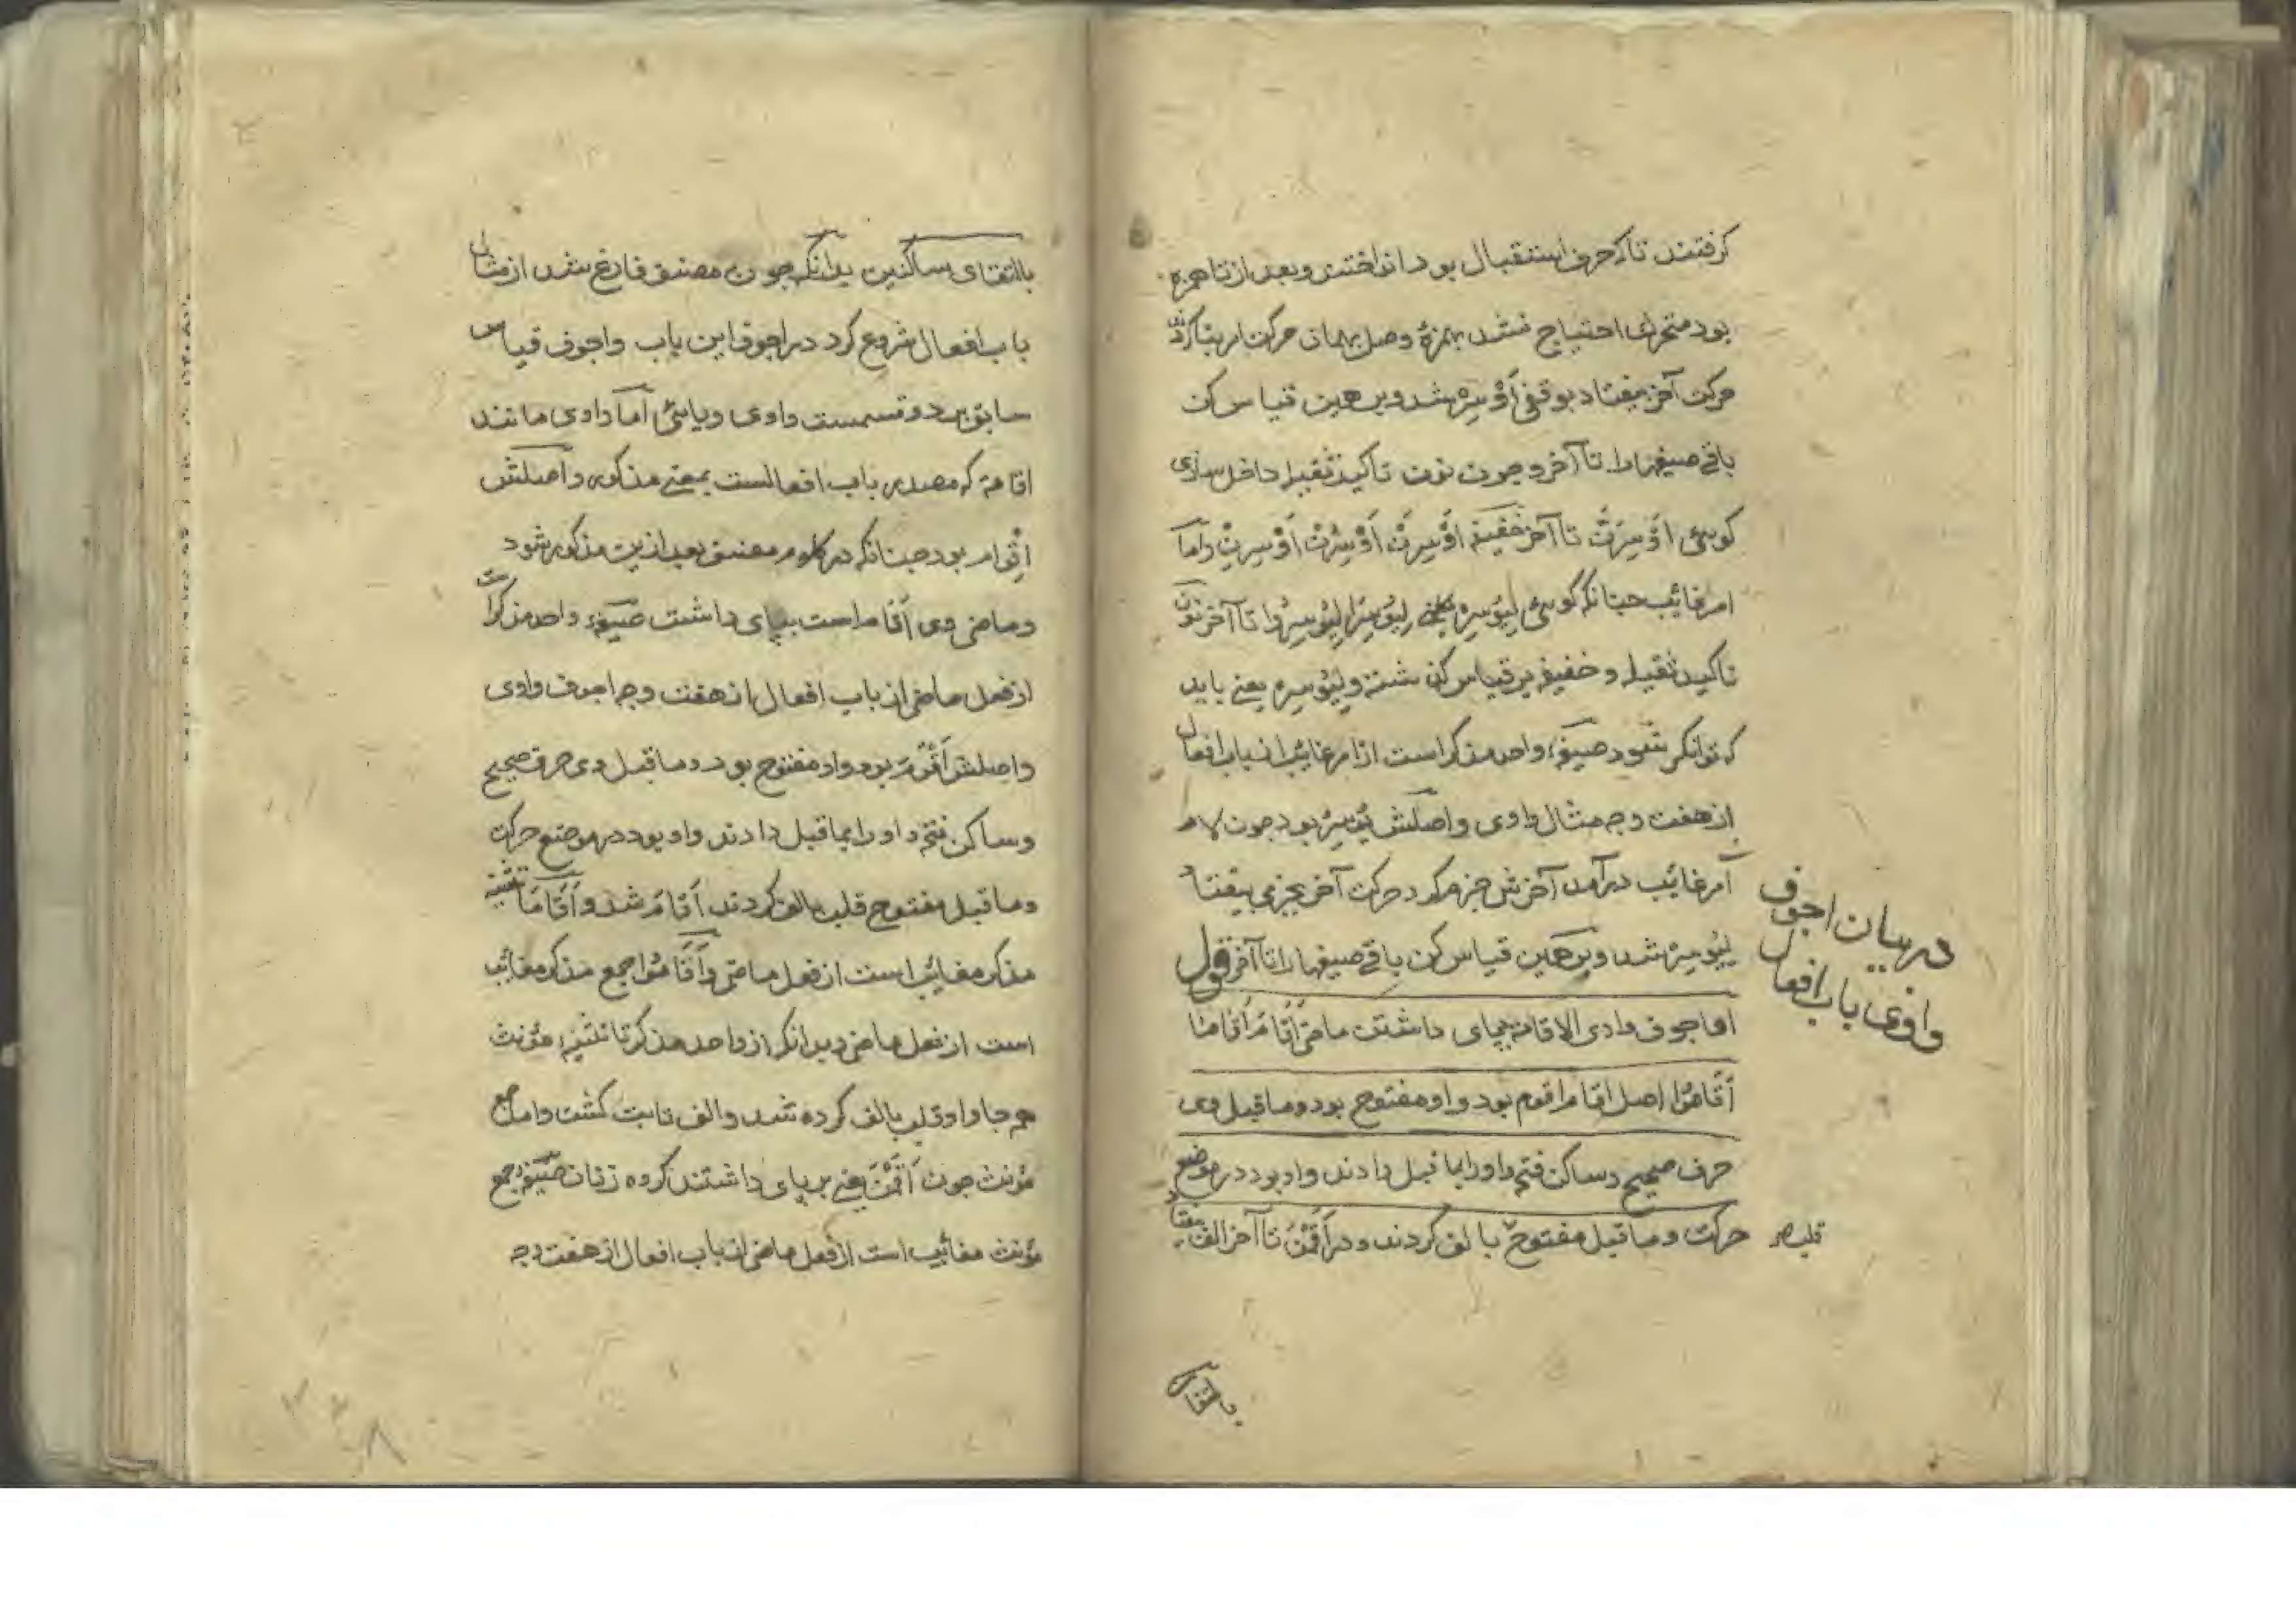 کرفتند تا که حرف استقبال بود انداختند و بعد از تا همزه
بود متحرک احتیاج نشد بهمزهٔ وصل بهمان حرکت امر بنا کردند
حرکت آخر بیفتاد بوقفی أَوْسِرْ شد و برهمین قیاس کن
باقی صیغهارا تا آخر و چون نون تاکید ثقیله داخل سازی
کویئ اَوْسِرَنَّ تا آخر خفیفه اَوْسِرَنْ اَوْسِرُنْ اَوْسِرِنْ واما
امر غائب چنانکه کویئ لِیُوْسِرْ لِیُوْسِرَا لِیُوْسِرُوا تا آخر نون
تاکید ثقیله و خفیفه بر قیاس کن شسته و لِیُوْسِرْ یعنی باید
که توانکر شود صیغهٔ واحد مذکر است از امر غائب از باب افعال
از هفت وجه مثال واوی و اصلش یُوْسِرُ بود چون لام
امر غائب درآمد آخرش جزم کرد حرکت آخر بجزمی بیفتاد
لِیُوْسِرْ شد و برهمین قیاس کن باقی صیغهارا تا آخر قول
اما اجوف واوی الاقامة بپای داشتن ماضی اَقَامَ اَقَامَا
اَقَامُوْا اصل اقام اقوم بود واو مفتوح بود و ماقبل وی
حرف صحیح و ساکن فتحه واو را بما قبل دادند واو بود در موضع
حرکت و ماقبل مفتوح بالف کردند و در اَقَمْنَ تا آخر الف بیفتاد
قلب صح
در بیان اجوف
واوی باب افعال
بالتقای
بالتقای ساکنین بدانکه چون مصنف فارغ شد از مثال
باب افعال شروع کرد در اجوف این باب واجوف قیاس
سابق بر دو قسمست واوی و یایئ اما واوی مانند
اقامة که مصدر باب افعالست بمعنی مذکور و اصلش
اِقْوَام بود چنانکه در کلام مصنف بعد ازین مذکور شود
و ماضی وی اَقَامَ است بپای داشت صیغهٔ واحد مذکر است
از فعل ماضی از باب افعال از هفت وجه اجوف واوی
و اصلش اَقْوَمَ بود واو مفتوح بود و ماقبل وی حرف صحیح
و ساکن فتحه واو را بما قبل دادند واو بود در موضع حرکت
و ماقبل مفتوح قلب بالف کردند اَقَامَ شد و اَقَامَا تثنیه
مذکر مغائب است از فعل ماضی و اَقَامُوْا جمع مذکر مغائب
است از فعل ماضی و بدانکه از واحد مذکر تا تثنیهٔ مؤنث
همه جا واو قلب بالف کرده شد و الف ثابت کشت و اما جمع
مؤنث چون اَقَمْنَ یعنی برپای داشتند کروه زنان صیغهٔ جمع
مؤنث مغائب است از فعل ماضی از باب افعال از هفت وجه